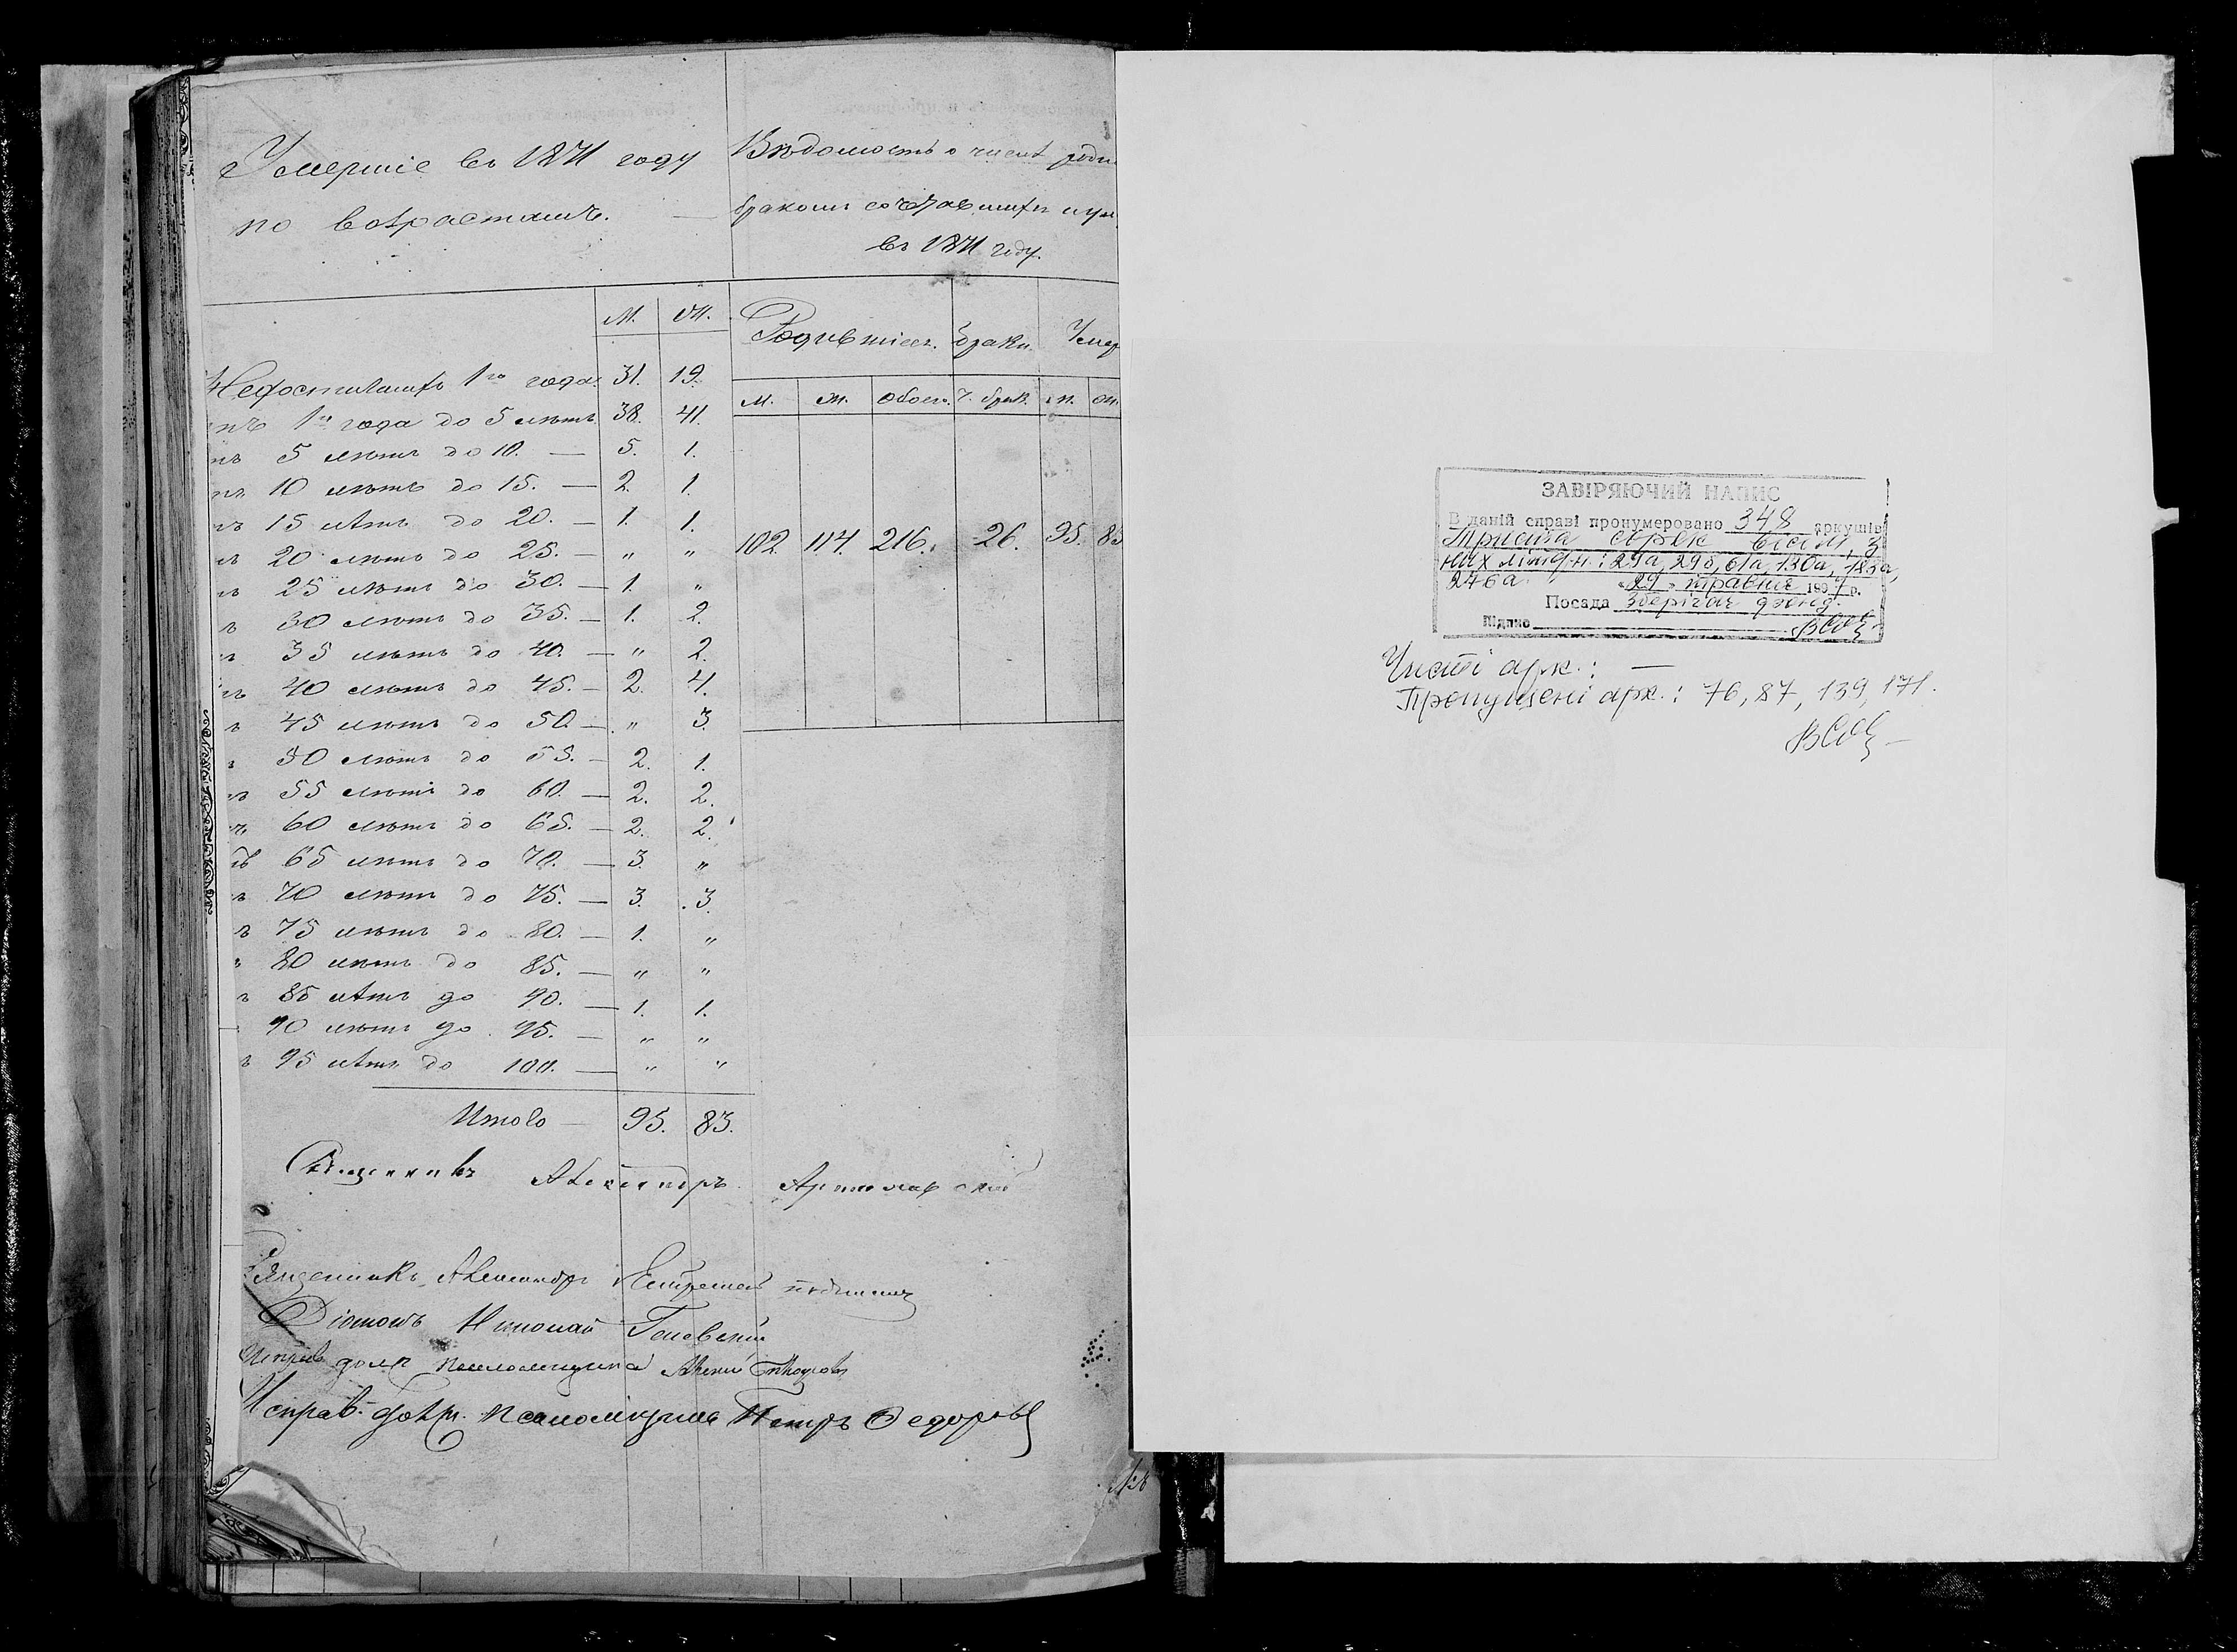 Умершіе въ 1871 году
по возрастамъ.
Вѣдомость о числѣ роди
бракомъ сочетавшихъ и ум
въ 1871 году.
М. Ж.
Недостигшихъ 1го года. 31. 19.
тъ 1го года до 5 лѣтъ 38. 41.
тъ 5 лѣтъ до 10. — 5. 1.
тъ 10 лѣтъ до 15. — 2. 1.
тъ 15 лѣтъ до 20. — 1. 1.
ъ 20 лѣтъ до 25. — " "
ъ 25 лѣтъ до 30. — 1. "
ъ 30 лѣтъ до 35. — 1. 2.
ъ 35 лѣтъ до 40. — " 2.
ъ 40 лѣтъ до 45. — 2. 4.
ъ 45 лѣтъ до 50. — " 3.
ъ 50 лѣтъ до 55. — 2. 1.
ъ 55 лѣтъ до 60. — 2. 2.
ъ 60 лѣтъ до 65. — 2. 2.
ъ 65 лѣтъ до 70. — 3. "
ъ 70 лѣтъ до 75. — 3. 3.
ъ 75 лѣтъ до 80. — 1. "
ъ 80 лѣтъ до 85. — " "
ъ 85 лѣтъ до 90. — 1. 1.
90 лѣтъ до 95. — " "
ъ 95 лѣтъ до 100. — " "
Итого — 95. 83.
Родившіеся. Браки. Умер
М. Ж. Обоего. Ч. брак. М. Ж.
102. 114. 216. 26. 95. 83
Священникъ Александръ
Священникъ Александръ
Діаконъ Николай
Исправ. долж. псаломщика
Исправ. долж. псаломщика Петръ Федоровъ
ЗАВІРЯЮЧИЙ НАПИС
В даній справі пронумеровано 348 аркушів
Триста сорок вісім, з
них літерн.: 29а, 29б, 61а, 130а, 183а,
276а. «29» травня 199 р.
Посада Зберігач фонд.
Підпис
Чисті арк.: —
Пропущені арк.: 76, 87, 139, 171.